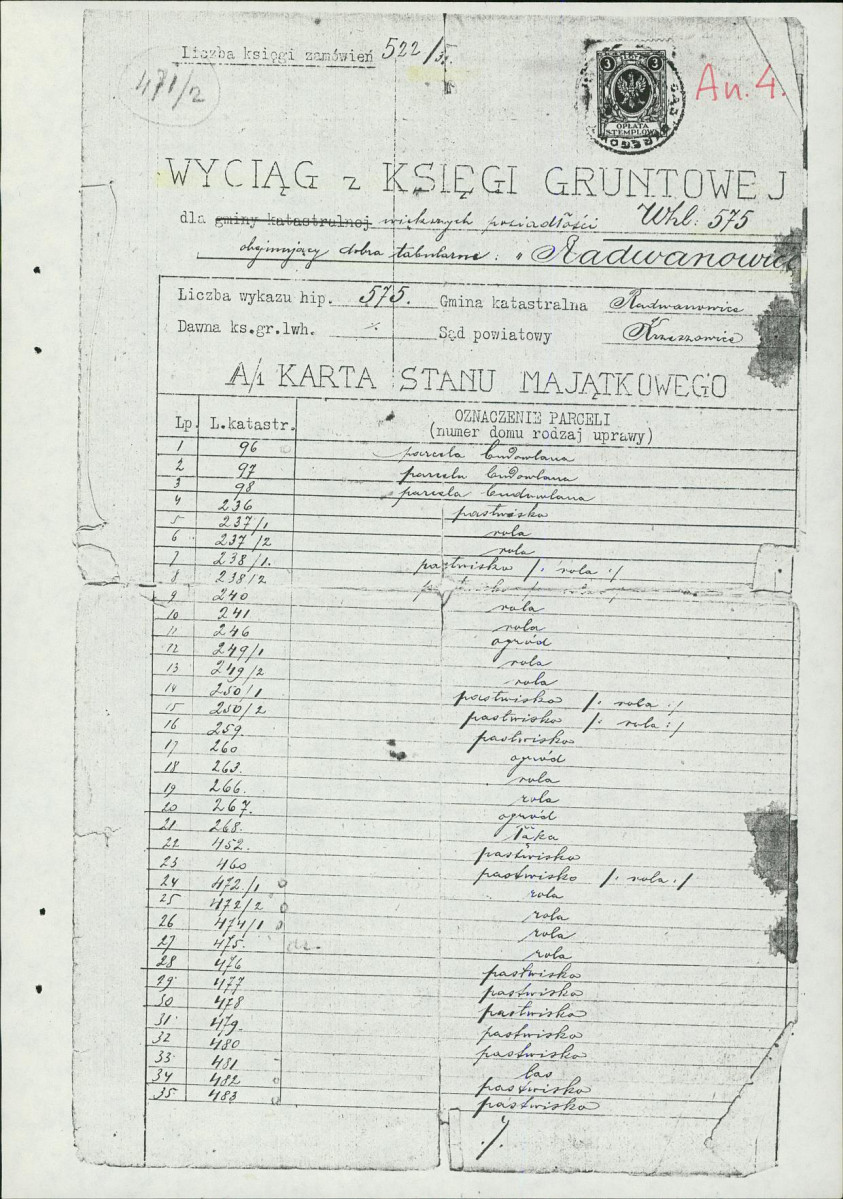 Liczba księgi zamówień 522/31.
471/2
3 3
OPŁATA
STEMPLOWA
An. 4.
WYCIĄG z KSIĘGI GRUNTOWEJ
dla gminy katastralnej większych posiadłości Whl: 575
obejmujący dobra tabularne: „Radwanowice
Liczba wykazu hip. 575. Gmina katastralna Radwanowice
Dawna ks.gr.lwh. ./. Sąd powiatowy Krzeszowice
A/1 KARTA STANU MAJĄTKOWEGO
Lp. L.katastr. OZNACZENIE PARCELI
(numer domu rodzaj uprawy)
1 96 parcela budowlana
2 97 parcela budowlana
3 98 parcela budowlana
4 236 pastwisko
5 237/1 rola
6 237/2 rola
7 238/1. pastwisko /: rola :/
8 238/2 pastwisko /: rola :/
9 240 rola
10 241 rola
11 246 ogród
12 249/1 rola
13 249/2 rola
14 250/1 pastwisko /: rola :/
15 250/2 pastwisko /: rola :/
16 259. pastwisko
17 260 ogród
18 263. rola
19 266. rola
20 267. ogród
21 268. łąka
22 452. pastwisko
23 460 pastwisko /: rola :/
24 472/1 rola
25 472/2 rola
26 474/1 rola
27 475. rola
28 476 pastwisko
29 477 pastwisko
30 478 pastwisko
31 479. pastwisko
32 480 pastwisko
33 481 las
34 482 pastwisko
35 483 pastwisko
./.